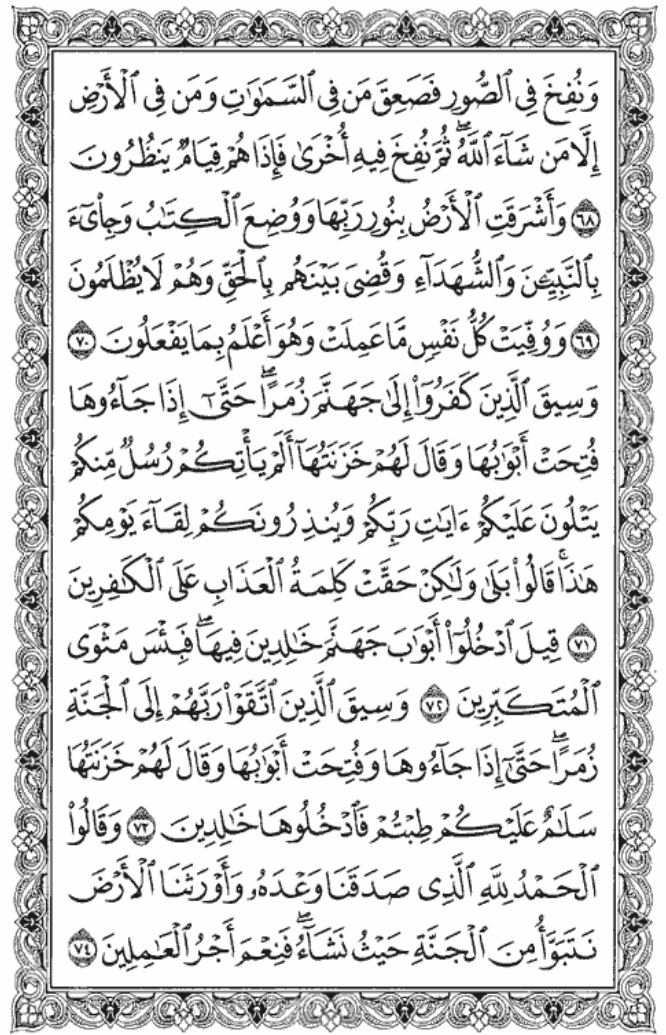 وَنُفِخَ فِي ٱلصُّورِ فَصَعِقَ مَن فِي ٱلسَّمَٰوَٰتِ وَمَن فِي ٱلْأَرْضِ
إِلَّا مَن شَآءَ ٱللَّهُ ۖ ثُمَّ نُفِخَ فِيهِ أُخْرَىٰ فَإِذَا هُمْ قِيَامٌ يَنظُرُونَ
٦٨ وَأَشْرَقَتِ ٱلْأَرْضُ بِنُورِ رَبِّهَا وَوُضِعَ ٱلْكِتَٰبُ وَجِا۟ىٓءَ
بِٱلنَّبِيِّۦنَ وَٱلشُّهَدَآءِ وَقُضِىَ بَيْنَهُم بِٱلْحَقِّ وَهُمْ لَا يُظْلَمُونَ
٦٩ وَوُفِّيَتْ كُلُّ نَفْسٍ مَّا عَمِلَتْ وَهُوَ أَعْلَمُ بِمَا يَفْعَلُونَ ٧٠
وَسِيقَ ٱلَّذِينَ كَفَرُوٓا۟ إِلَىٰ جَهَنَّمَ زُمَرًا ۖ حَتَّىٰٓ إِذَا جَآءُوهَا
فُتِحَتْ أَبْوَٰبُهَا وَقَالَ لَهُمْ خَزَنَتُهَآ أَلَمْ يَأْتِكُمْ رُسُلٌ مِّنكُمْ
يَتْلُونَ عَلَيْكُمْ ءَايَٰتِ رَبِّكُمْ وَيُنذِرُونَكُمْ لِقَآءَ يَوْمِكُمْ
هَٰذَا ۚ قَالُوا۟ بَلَىٰ وَلَٰكِنْ حَقَّتْ كَلِمَةُ ٱلْعَذَابِ عَلَى ٱلْكَٰفِرِينَ
٧١ قِيلَ ٱدْخُلُوٓا۟ أَبْوَٰبَ جَهَنَّمَ خَٰلِدِينَ فِيهَا ۖ فَبِئْسَ مَثْوَى
ٱلْمُتَكَبِّرِينَ ٧٢ وَسِيقَ ٱلَّذِينَ ٱتَّقَوْا۟ رَبَّهُمْ إِلَى ٱلْجَنَّةِ
زُمَرًا ۖ حَتَّىٰٓ إِذَا جَآءُوهَا وَفُتِحَتْ أَبْوَٰبُهَا وَقَالَ لَهُمْ خَزَنَتُهَا
سَلَٰمٌ عَلَيْكُمْ طِبْتُمْ فَٱدْخُلُوهَا خَٰلِدِينَ ٧٣ وَقَالُوا۟
ٱلْحَمْدُ لِلَّهِ ٱلَّذِى صَدَقَنَا وَعْدَهُۥ وَأَوْرَثَنَا ٱلْأَرْضَ
نَتَبَوَّأُ مِنَ ٱلْجَنَّةِ حَيْثُ نَشَآءُ ۖ فَنِعْمَ أَجْرُ ٱلْعَٰمِلِينَ ٧٤